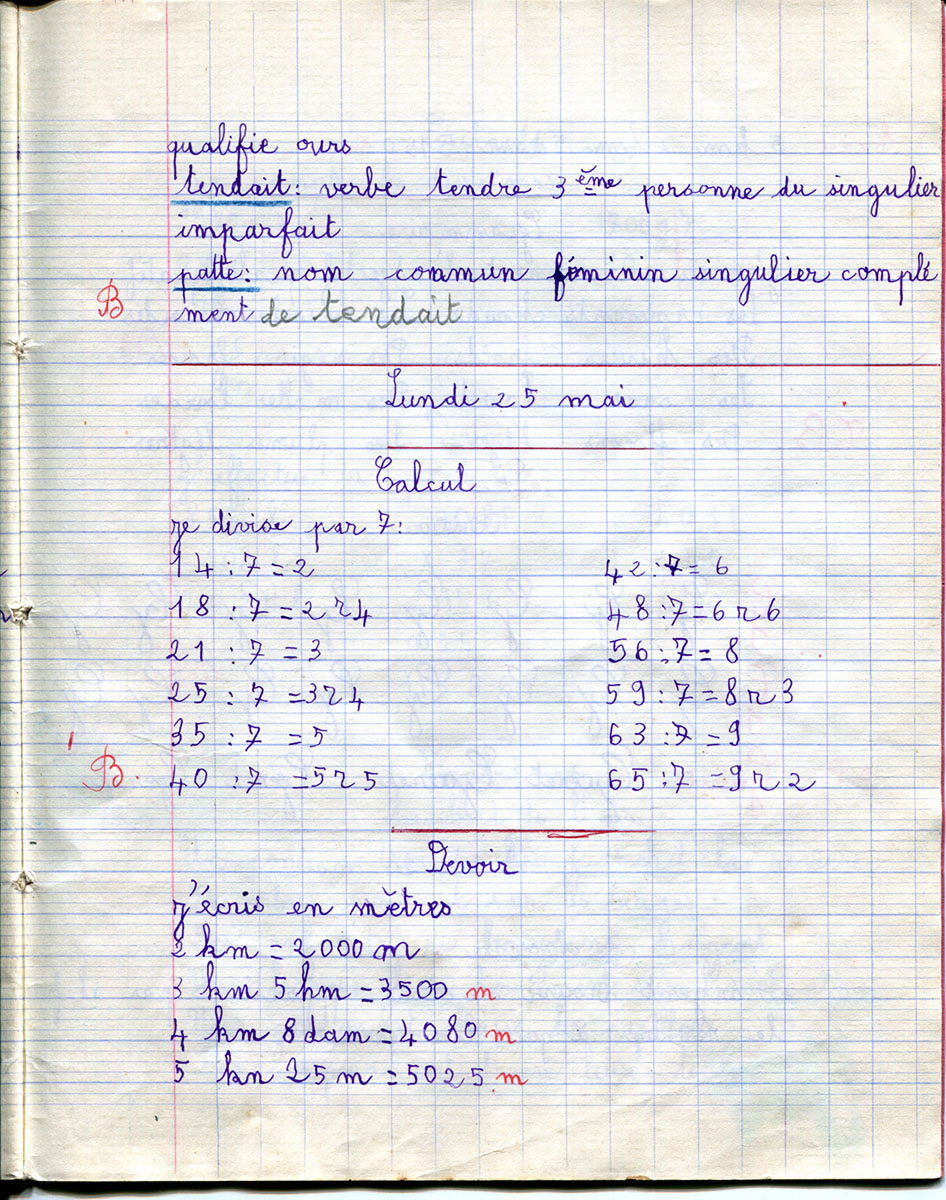 qualifie ours
tendait: verbe tendre 3ème personne du singulier
imparfait
patte: nom commun féminin singulier complé
B ment de tendait
Lundi 25 mai
Calcul
je divise par 7:
14 : 7 = 2 42 : 7 = 6
18 : 7 = 2 r 4 48 : 7 = 6 r 6
21 : 7 = 3 56 : 7 = 8
25 : 7 = 3 r 4 59 : 7 = 8 r 3
35 : 7 = 5 63 : 7 = 9
B. 40 : 7 = 5 r 5 65 : 7 = 9 r 2
Devoir
j'écris en mètres
2 km = 2000 m
3 km 5 hm = 3500 m
4 km 8 dam = 4080 m
5 kn 25 m = 5025 m